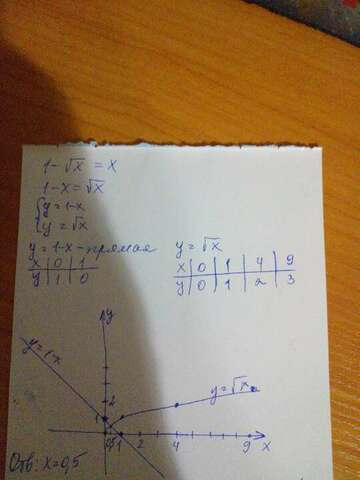 1-√x = x
1-x=√x
{y=1-x
{y=√x
y=1-x-прямая
x | 0 | 1
y | 1 | 0
y=√x
x | 0 | 1 | 4 | 9
y | 0 | 1 | 2 | 3
y
y=1-x
2
1
y=√x
0,5 1 2 4 9 x
Отв: x=0,5